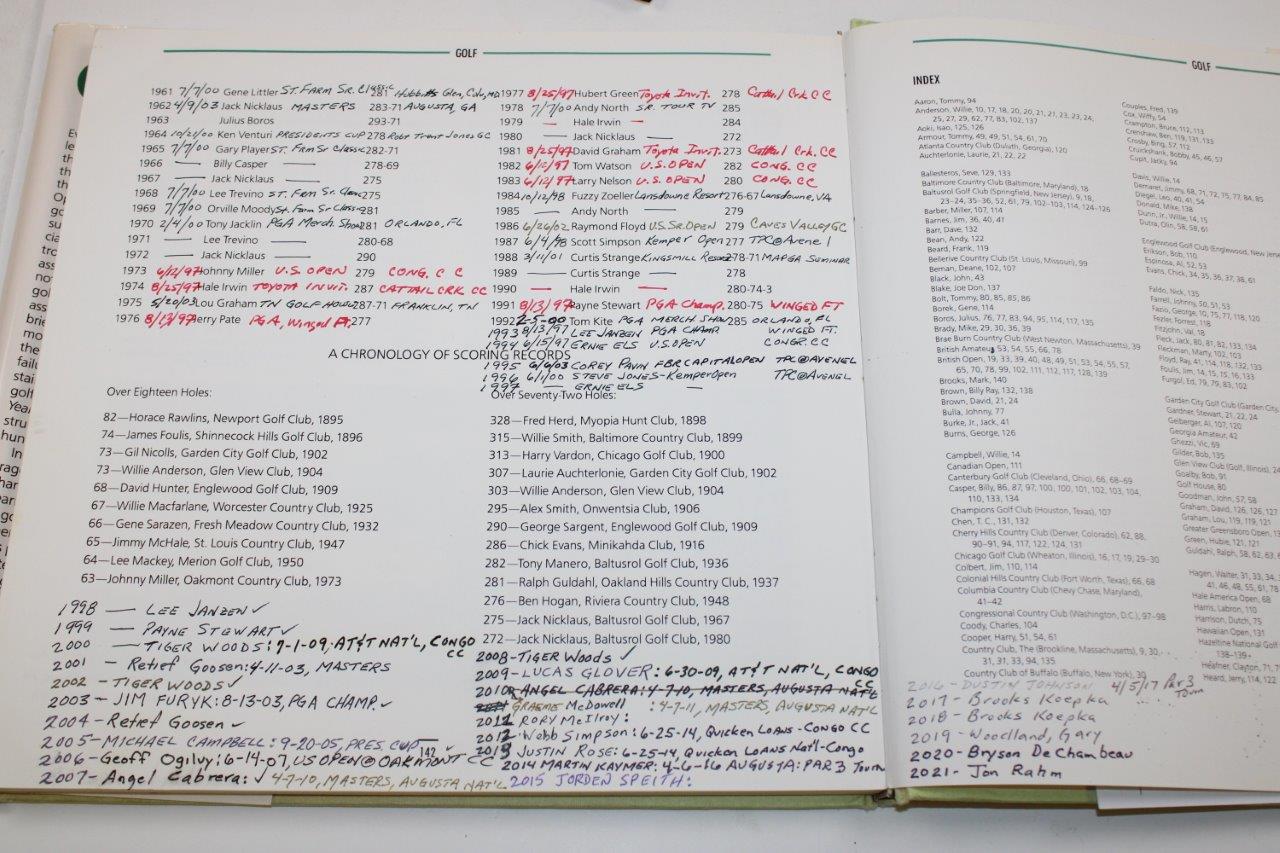 GOLF
1961 7/7/00 Gene Littler ST. FARM SR. Classic 281 Hobbits Glen, Colu, MD
1962 4/9/03 Jack Nicklaus MASTERS 283-71 AUGUSTA, GA
1963 Julius Boros 293-71
1964 10/21/00 Ken Venturi PRESIDENTS CUP 278 Robt Trent Jones GC
1965 7/7/00 Gary Player ST. Farm Sr Classic 282-71
1966 — Billy Casper — 278-69
1967 — Jack Nicklaus — 275
1968 7/7/00 Lee Trevino ST. Farm Sr Classic 275
1969 7/7/00 Orville Moody St. Farm Sr Classic 281
1970 2/4/00 Tony Jacklin PGA Merch. Show 281 ORLANDO, FL
1971 — Lee Trevino — 280-68
1972 — Jack Nicklaus — 290
1973 6/12/97 Johnny Miller U.S. OPEN 279 CONG. C C
1974 8/25/97 Hale Irwin TOYOTA INVIT. 287 CATTAIL CRK CC
1975 5/20/03 Lou Graham TN GOLF HOUSE 287-71 FRANKLIN, TN
1976 8/13/97 Jerry Pate PGA, Winged Ft. 277
1977 8/25/97 Hubert Green Toyota Invit. 278 Cattail Crk CC
1978 7/7/00 Andy North SR. TOUR TV 285
1979 — Hale Irwin — 284
1980 — Jack Nicklaus — 272
1981 8/25/97 David Graham Toyota Invit. 273 Cattail Crk. CC
1982 6/12/97 Tom Watson U.S. OPEN 282 CONG. CC
1983 6/12/97 Larry Nelson U.S. OPEN 280 CONG. CC
1984 10/12/98 Fuzzy Zoeller Lansdowne Resort 276-67 Lansdowne, VA
1985 — Andy North — 279
1986 6/26/02 Raymond Floyd U.S. Sr. OPEN 279 CAVES VALLEY GC
1987 6/4/98 Scott Simpson Kemper Open 277 TPC@Avenel
1988 3/11/01 Curtis Strange Kingsmill Resort 278-71 MAPGA SUMINAR
1989 — Curtis Strange — 278
1990 — Hale Irwin — 280-74-3
1991 8/13/97 Payne Stewart PGA Champ. 280-75 WINGED FT
1992 2-5-00 Tom Kite PGA MERCH SHOW 285 ORLANDO, FL
1993 8/13/97 LEE JANZEN PGA CHAMP. WINGED FT.
1994 6/15/97 ERNIE ELS U.S. OPEN CONGR. CC
1995 6/6/03 COREY PAVIN FBR CAPITAL OPEN TPC@AVENEL
1996 6/1/00 STEVE JONES-Kemper Open TPC@AVENEL
1997 — ERNIE ELS —
A CHRONOLOGY OF SCORING RECORDS
Over Eighteen Holes:
82—Horace Rawlins, Newport Golf Club, 1895
74—James Foulis, Shinnecock Hills Golf Club, 1896
73—Gil Nicolls, Garden City Golf Club, 1902
73—Willie Anderson, Glen View Club, 1904
68—David Hunter, Englewood Golf Club, 1909
67—Willie Macfarlane, Worcester Country Club, 1925
66—Gene Sarazen, Fresh Meadow Country Club, 1932
65—Jimmy McHale, St. Louis Country Club, 1947
64—Lee Mackey, Merion Golf Club, 1950
63—Johnny Miller, Oakmont Country Club, 1973
Over Seventy-Two Holes:
328—Fred Herd, Myopia Hunt Club, 1898
315—Willie Smith, Baltimore Country Club, 1899
313—Harry Vardon, Chicago Golf Club, 1900
307—Laurie Auchterlonie, Garden City Golf Club, 1902
303—Willie Anderson, Glen View Club, 1904
295—Alex Smith, Onwentsia Club, 1906
290—George Sargent, Englewood Golf Club, 1909
286—Chick Evans, Minikahda Club, 1916
282—Tony Manero, Baltusrol Golf Club, 1936
281—Ralph Guldahl, Oakland Hills Country Club, 1937
276—Ben Hogan, Riviera Country Club, 1948
275—Jack Nicklaus, Baltusrol Golf Club, 1967
272—Jack Nicklaus, Baltusrol Golf Club, 1980
1998 — LEE JANZEN ✓
1999 — PAYNE STEWART ✓
2000 — TIGER WOODS: 7-1-09, AT&T NAT'L, CONGO CC
2001 - Retief Goosen: 4-11-03, MASTERS
2002 - TIGER WOODS ✓
2003 - JIM FURYK: 8-13-03, PGA CHAMP. ✓
2004 - Retief Goosen ✓
2005 - MICHAEL CAMPBELL: 9-20-05, PRES. CUP ✓
2006 - Geoff Ogilvy: 6-14-07, US OPEN @ OAKMONT CC
2007 - Angel Cabrera: ✓ 4-7-10, MASTERS, AUGUSTA NAT'L
142
2008-TIGER Woods ✓
2009-LUCAS GLOVER: 6-30-09, AT&T NAT'L, CONGO CC
2010 ANGEL CABRERA: 4-7-10, MASTERS, AUGUSTA NAT'L
GRAEME McDowell : 4-7-11, MASTERS, AUGUSTA NAT'L
2011 RORY McIlroy:
2012 Webb Simpson: 6-25-14, Quicken LOANS - CONGO CC
2013 JUSTIN ROSE: 6-25-14, Quicken LOANS Nat'l-Congo
2014 MARTIN KAYMER: 4-6-16 AUGUSTA: PAR 3 Tourn
2015 JORDEN SPEITH:
GOLF
INDEX
Aaron, Tommy, 94
Anderson, Willie, 10, 17, 18, 20, 20, 21, 21, 23, 23, 24,
25, 27, 29, 62, 77, 83, 102, 137
Aoki, Isao, 125, 126
Armour, Tommy, 49, 49, 51, 54, 61, 70
Atlanta Country Club (Duluth, Georgia), 120
Auchterlonie, Laurie, 21, 22, 22
Ballesteros, Seve, 129, 133
Baltimore Country Club (Baltimore, Maryland), 18
Baltusrol Golf Club (Springfield, New Jersey), 9, 18,
23–24, 35–36, 52, 61, 79, 102–103, 114, 124–126
Barber, Miller, 107, 114
Barnes, Jim, 36, 40, 41
Barr, Dave, 132
Bean, Andy, 122
Beard, Frank, 119
Bellerive Country Club (St. Louis, Missouri), 99
Beman, Deane, 102, 107
Black, John, 43
Blake, Joe Don, 137
Bolt, Tommy, 80, 85, 85, 86
Borek, Gene, 114
Boros, Julius, 76, 77, 83, 94, 95, 114, 117, 135
Brady, Mike, 29, 30, 36, 39
Brae Burn Country Club (West Newton, Massachusetts), 39
British Amateur, 53, 54, 55, 66, 78
British Open, 19, 33, 39, 40, 48, 49, 51, 53, 54, 55, 57,
65, 70, 78, 99, 102, 111, 112, 117, 128, 139
Brooks, Mark, 140
Brown, Billy Ray, 132, 138
Brown, David, 21, 24
Bulla, Johnny, 77
Burke, Jr., Jack, 41
Burns, George, 126
Campbell, Willie, 14
Canadian Open, 111
Canterbury Golf Club (Cleveland, Ohio), 66, 68–69
Casper, Billy, 86, 87, 97, 100, 100, 101, 102, 103, 104,
110, 133, 134
Champions Golf Club (Houston, Texas), 107
Chen, T. C., 131, 132
Cherry Hills Country Club (Denver, Colorado), 62, 88,
90–91, 94, 117, 122, 124, 131
Chicago Golf Club (Wheaton, Illinois), 16, 17, 19, 29–30
Colbert, Jim, 110, 114
Colonial Hills Country Club (Fort Worth, Texas), 66, 68
Columbia Country Club (Chevy Chase, Maryland),
41–42
Congressional Country Club (Washington, D.C.), 97–98
Coody, Charles, 104
Cooper, Harry, 51, 54, 61
Country Club, The (Brookline, Massachusetts), 9, 30,
31, 31, 33, 94, 135
Country Club of Buffalo (Buffalo, New York), 30
Couples, Fred, 139
Cox, Wiffy, 54
Crampton, Bruce, 112, 113
Crenshaw, Ben, 119, 131, 133
Crosby, Bing, 57, 112
Cruickshank, Bobby, 45, 46, 57
Cupit, Jacky, 94
Davis, Willie, 14
Demaret, Jimmy, 68, 71, 72, 75, 77, 84, 85
Diegel, Leo, 40, 41, 54
Donald, Mike, 138
Dunn, Jr., Willie, 14, 15
Dutra, Olin, 58, 58, 61
Englewood Golf Club (Englewood, New Jersey
Erikson, Bob, 110
Espinosa, Al, 52, 53
Evans, Chick, 34, 35, 36, 37, 38, 61
Faldo, Nick, 135
Farrell, Johnny, 50, 51, 53
Fazio, George, 10, 75, 77, 118, 120
Fezler, Forrest, 118
Fitzjohn, Val, 18
Fleck, Jack, 80, 81, 82, 133, 134
Fleckman, Marty, 102, 103
Floyd, Ray, 41, 114, 118, 132, 133
Foulis, Jim, 14, 15, 15, 16, 133
Furgol, Ed, 79, 79, 83, 102
Garden City Golf Club (Garden City,
Gardner, Stewart, 21, 22, 24
Geiberger, Al, 107, 120
Georgia Amateur, 42
Ghezzi, Vic, 69
Gilder, Bob, 135
Glen View Club (Golf, Illinois), 24
Goalby, Bob, 91
Golf House, 80
Goodman, John, 57, 58
Graham, David, 126, 126, 127
Graham, Lou, 119, 119, 121
Greater Greensboro Open, 13
Green, Hubie, 121, 121
Guldahl, Ralph, 58, 62, 63, 6
Hagen, Walter, 31, 33, 34, 3
41, 46, 48, 55, 61, 78
Hale America Open, 68
Harris, Labron, 110
Harrison, Dutch, 75
Hawaiian Open, 131
Hazeltine National Golf
138–139
Heafner, Clayton, 71, 7
Heard, Jerry, 114, 122
2016 - DUSTIN JOHNSON 4/5/17 Par 3 Tourn
2017 - Brooks Koepka
2018 - Brooks Koepka
2019 - Woodland, Gary
2020- Bryson DeChambeau
2021- Jon Rahm